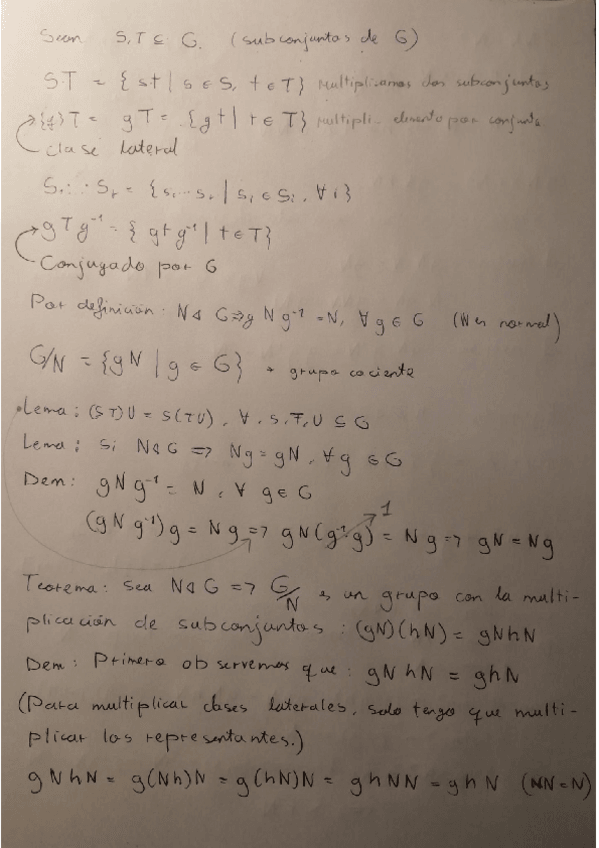 Sean S,T ⊆ G. (subconjuntos de G)
ST = {st | s ∈ S, t ∈ T} Multiplicamos dos subconjuntos
{g}T = gT = {gt | t ∈ T} multipli. elemento por conjunto
clase lateral
S₁...Sᵣ = {s₁...sᵣ | sᵢ ∈ Sᵢ, ∀i}
gTg⁻¹ = {gtg⁻¹ | t ∈ T}
Conjugado por G
Por definición: N ⊲ G ⇒ gNg⁻¹ = N, ∀g ∈ G (N es normal)
G/N = {gN | g ∈ G} → grupo cociente
Lema: (ST)U = S(TU), ∀ S,T,U ⊆ G
Lema: Si N ⊲ G => Ng = gN, ∀g ∈ G
Dem: gNg⁻¹ = N, ∀ g ∈ G
1
(gNg⁻¹)g = Ng => gN(g⁻¹g) = Ng => gN = Ng
Teorema: sea N ⊲ G => G/N es un grupo con la multi-
plicación de subconjuntos: (gN)(hN) = gNhN
Dem: Primero observemos que: gNhN = ghN
(Para multiplicar clases laterales, solo tengo que multi-
plicar los representantes.)
gNhN = g(Nh)N = g(hN)N = ghNN = ghN (NN=N)